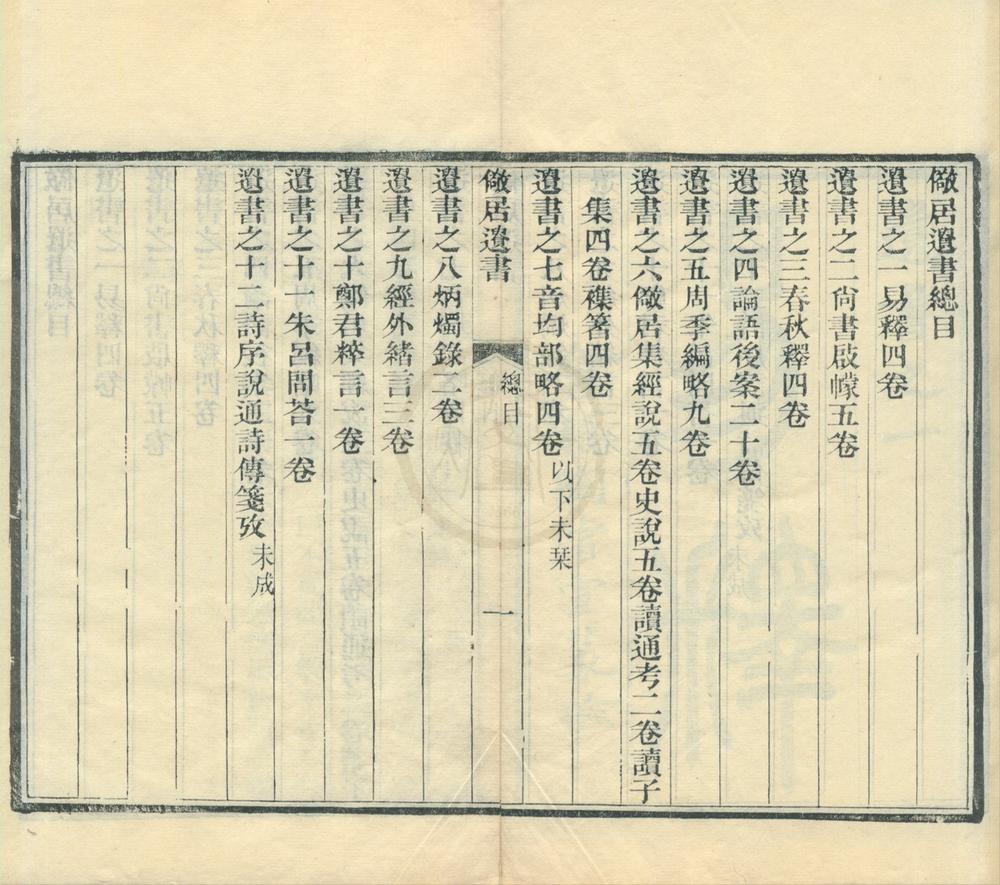 儆居遺書總目
遺書之一易釋四卷
遺書之二尙書啟幪五卷
遺書之三春秋釋四卷
遺書之四論語後案二十卷
遺書之五周季編略九卷
遺書之六儆居集經說五卷史說五卷讀通考二卷讀子
集四卷襍箸四卷
遺書之七音均部略四卷以下未栞
儆居遺書
總目
一
遺書之八炳燭錄二卷
遺書之九經外緒言三卷
遺書之十鄭君粹言一卷
遺書之十一朱呂問荅一卷
遺書之十二詩序說通詩傳箋攷未成